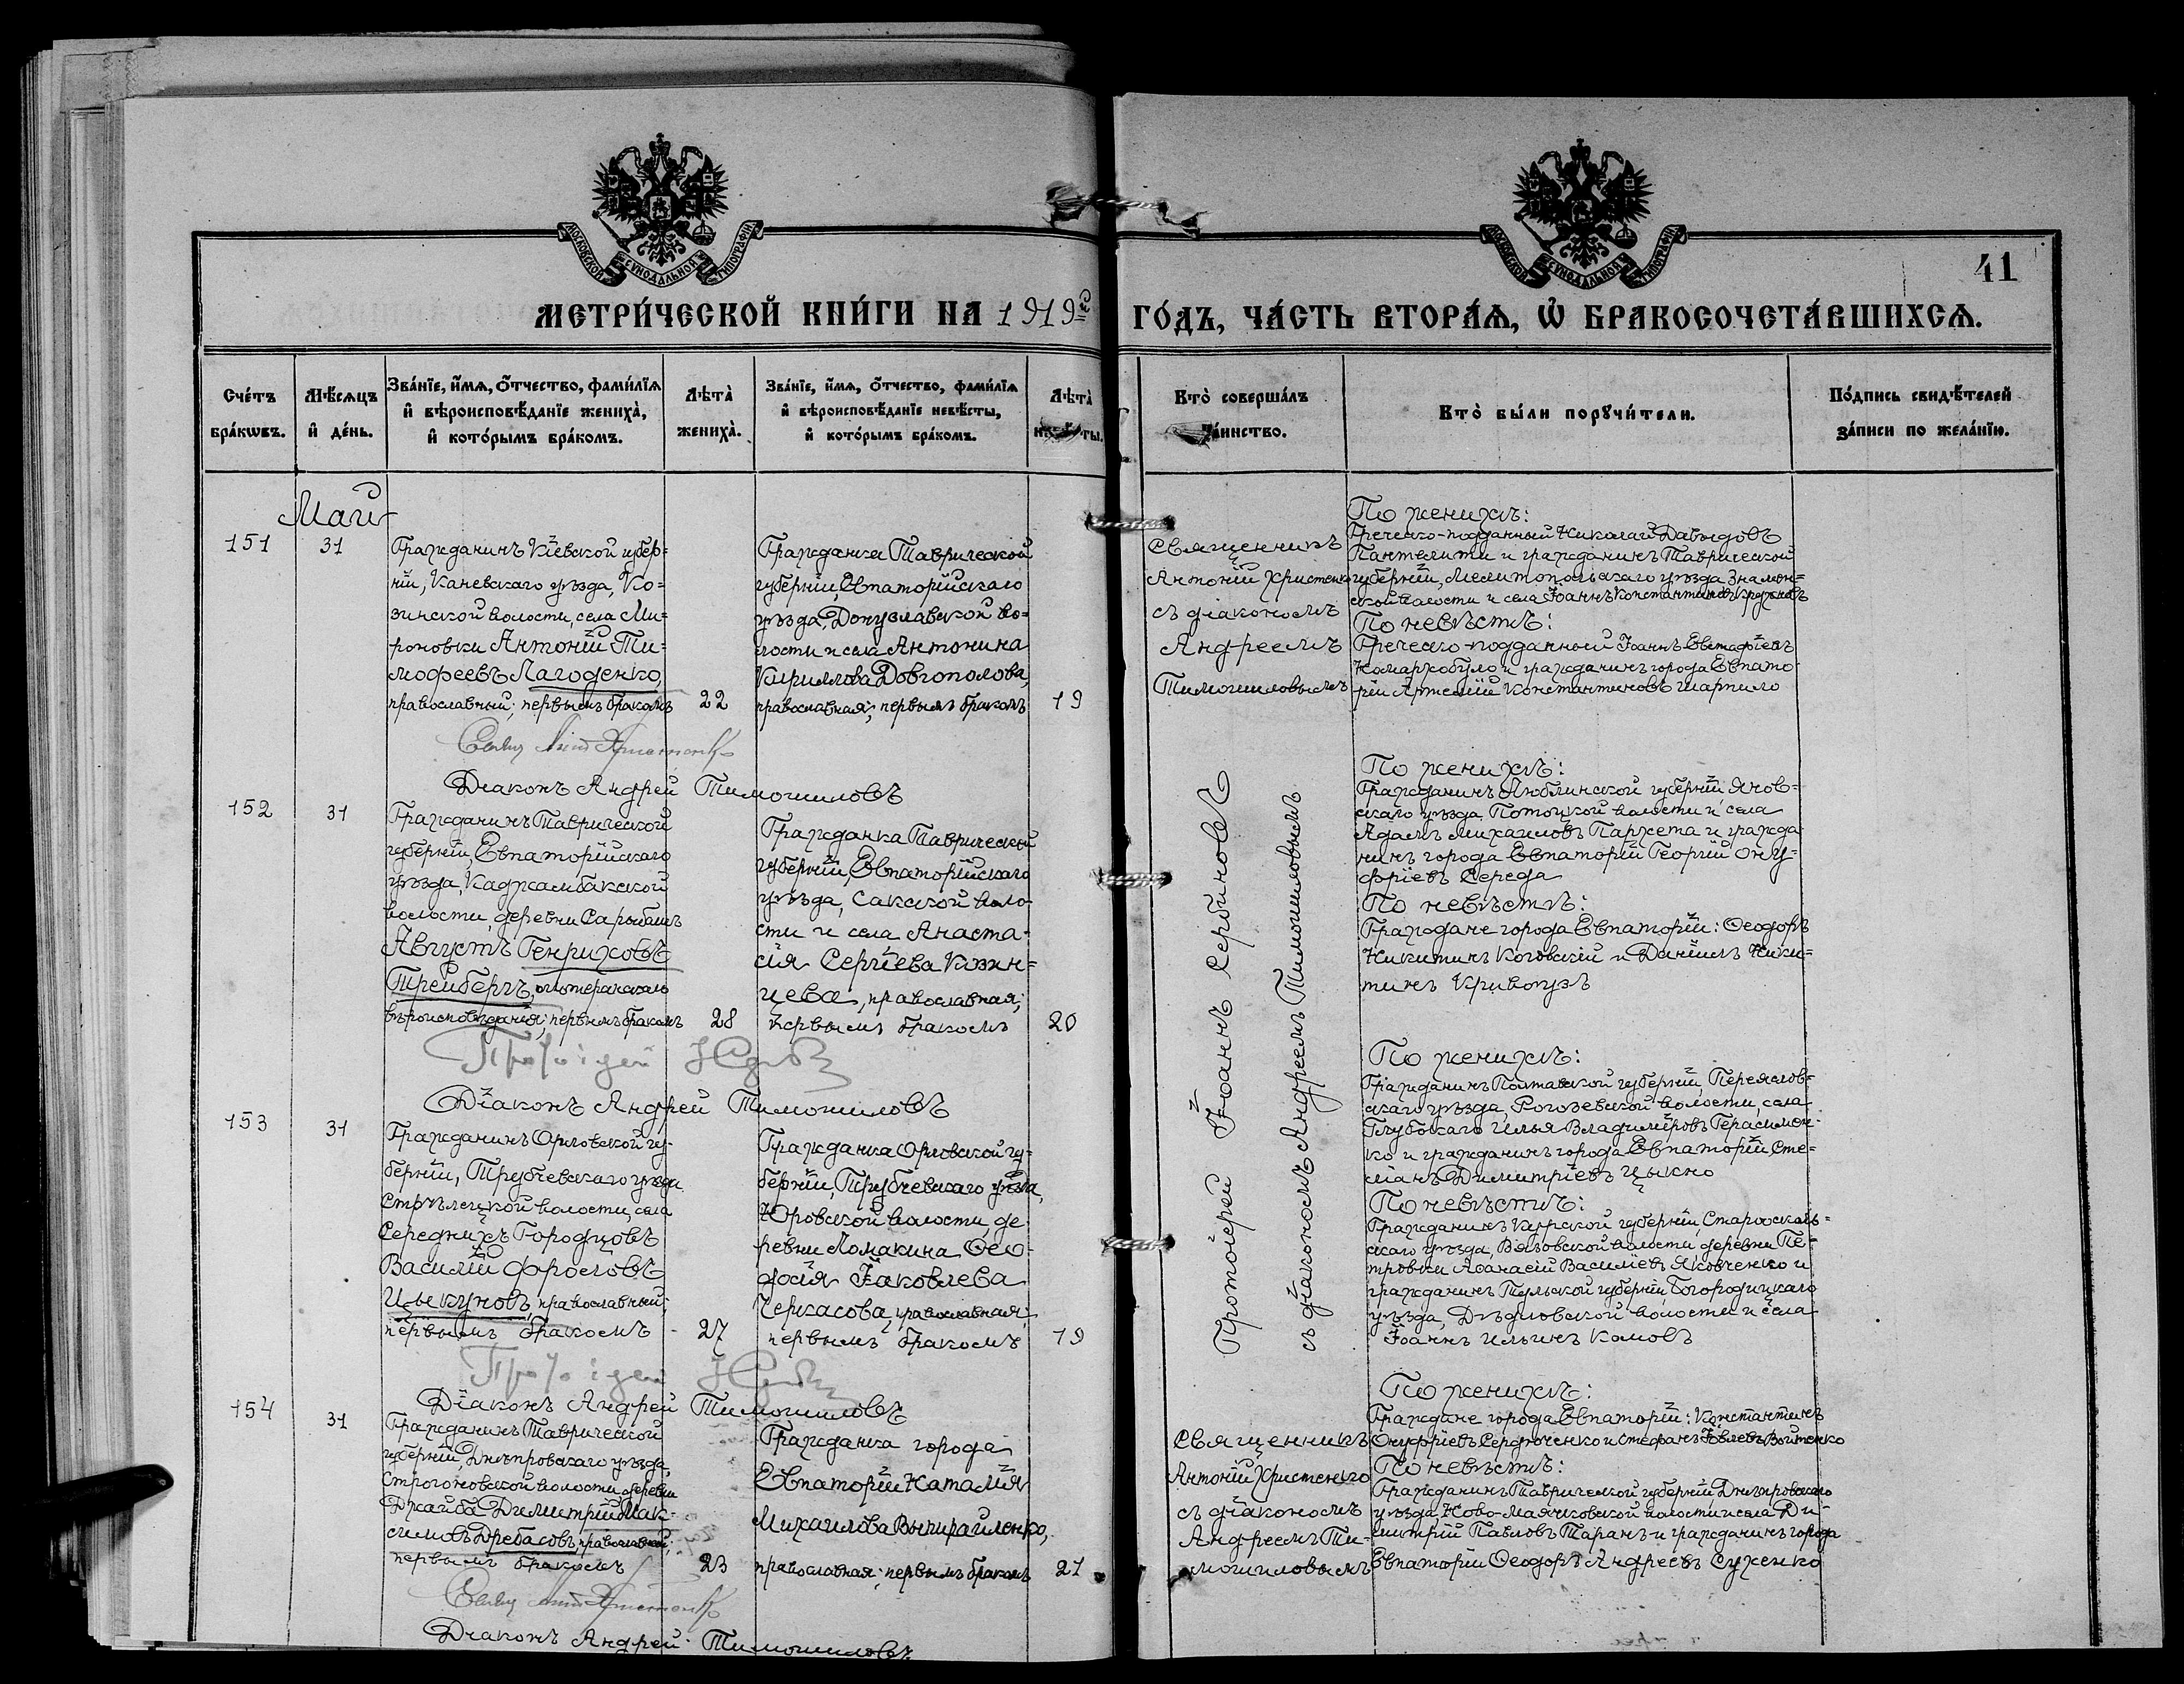 МОСКОВСКОЙ СѴНОДАЛЬНОЙ ТИПОГРАФІИ
МОСКОВСКОЙ СѴНОДАЛЬНОЙ ТИПОГРАФІИ
41
МЕТРИ́ЧЕСКОЙ КНИ́ГИ НА 1919й ГО́ДЪ, ЧА́СТЬ ВТОРА́Ѧ, Ѡ҆ БРАКОСОЧЕТА́ВШИХСѦ.
Сче́тъ бра́кѡвъ.
Мѣ́сѧцъ и҆ де́нь.
Зва́нїе, и҆́мѧ, ѻ҆́тчество, фами́лїѧ
и҆ вѣроисповѣ́данїе жениха̀,
и҆ кото́рымъ бра́комъ.
Лѣта̀ жениха̀.
Зва́нїе, и҆́мѧ, ѻ҆́тчество, фами́лїѧ
и҆ вѣроисповѣ́данїе невѣ́сты,
и҆ кото́рымъ бра́комъ.
Лѣта̀
Кто̀ соверша́лъ
та́инство.
Кто̀ бы́ли порꙋчи́тели.
По́дпись свидѣ́телей
за́писи по жела́нїю.
Май
151
31
Гражданинъ Кіевской губер=
ніи, Каневскаго уѣзда, Ко=
зинской волости, села Ми=
роновки Антоній Ти=
мофеевъ Лагоденко,
православный; первымъ бракомъ
22
Гражданка Таврической
губерніи, Евпаторійскаго
уѣзда, Донузлавской во=
лости и села Антонина
Кириллова Довгополова,
православная; первымъ бракомъ
19
Священникъ
Антоній Христенко
съ діакономъ
Андреемъ
Тимошиловымъ
По женихѣ:
Греческо-подданный Николай Давыдовъ
Пантелити и гражданинъ Таврической
губерніи, Мелитопольскаго уѣзда Знамен=
ской волости и села Іоаннъ Константиновъ
По невѣстѣ:
Греческо-подданный Іоаннъ Евстафіевъ
и гражданинъ города Евпато-
ріи Артемій Константиновъ Шарпило
Діаконъ Андрей Тимошиловъ
152
31
Гражданинъ Таврической
губерніи, Евпаторійскаго
уѣзда, Каджамбакской
волости, деревни Сарыбашъ
Августъ Генриховъ
Трейбергъ, лютеранскаго
вѣроисповѣданія; первымъ бракомъ
28
Гражданка Таврической
губерніи, Евпаторійскаго
уѣзда, Сакской воло-
сти и села Анаста-
сія Сергіева Казин=
цева, православная;
первымъ бракомъ
20
Протоіерей Іоаннъ Сербиновъ
съ діакономъ Андреемъ Тимошиловымъ
По женихѣ:
Гражданинъ Люблинской губерніи Янов=
скаго уѣзда Потоцкой волости и села
Адамъ Михаиловъ Паржета и гражда-
нинъ города Евпаторіи Георгій Ону-
фріевъ Середа
По невѣстѣ:
Граждане города Евпаторіи: Ѳеодоръ
Никитинъ Коговскій и Даніилъ Ники=
тинъ Кривогузъ
Протоіерей
Діаконъ Андрей Тимошиловъ
153
31
Гражданинъ Орловской гу-
берніи, Трубчевскаго уѣзда
Стрѣлецкой волости, села
Середнихъ Городцовъ
Василій Фроловъ
Цыкуновъ, православный;
первымъ бракомъ
27
Гражданка Орловской гу=
берніи, Трубчевскаго уѣзда,
Юровской волости, де
ревни Ломакина Ѳео-
досія Іаковлева
Черкасова, православная;
первымъ бракомъ
19
По женихѣ:
Гражданинъ Полтавской губерніи, Переяслов=
скаго уѣзда, Рогозевской волости, села
Глубокаго Илья Владиміровъ Герасимен-
ко и гражданинъ города Евпаторіи Сте=
фанъ Димитріевъ Цыкно
По невѣстѣ:
Гражданинъ Курской губерніи, Староосколь=
скаго уѣзда, Вязовской волости, деревни Пе-
тровки Аѳанасій Василіевъ Яковченко и
гражданинъ Тульской губерніи Богородицкаго
уѣзда, Дѣдиловской волости и села
Іоаннъ Ильинъ Комовъ
Протоіерей
Діаконъ Андрей Тимошиловъ
154
31
Гражданинъ Таврической
губерніи, Днѣпровскаго уѣзда,
Строгоновской волости, деревни
Джайба Димитрій Мак-
симовъ Дребасовъ, православный;
первымъ бракомъ
23
Гражданка города
Евпаторіи Наталія
Михаилова Выпирайленко,
православная; первымъ бракомъ
21
Священникъ
Антоній Христенко
съ діакономъ
Андреемъ Ти-
мошиловымъ
По женихѣ:
Граждане города Евпаторіи: Константинъ
Онуфріевъ Сердюченко и Стефанъ Іовлевъ Войтенко
По невѣстѣ:
Гражданинъ Таврической губерніи Днѣпровскаго
уѣзда, Ново-Маячковской волости и села Ди-
митрій Павловъ Таранъ и гражданинъ города
Евпаторіи Ѳеодоръ Андреевъ Сухенко
Діаконъ Андрей Тимошиловъ